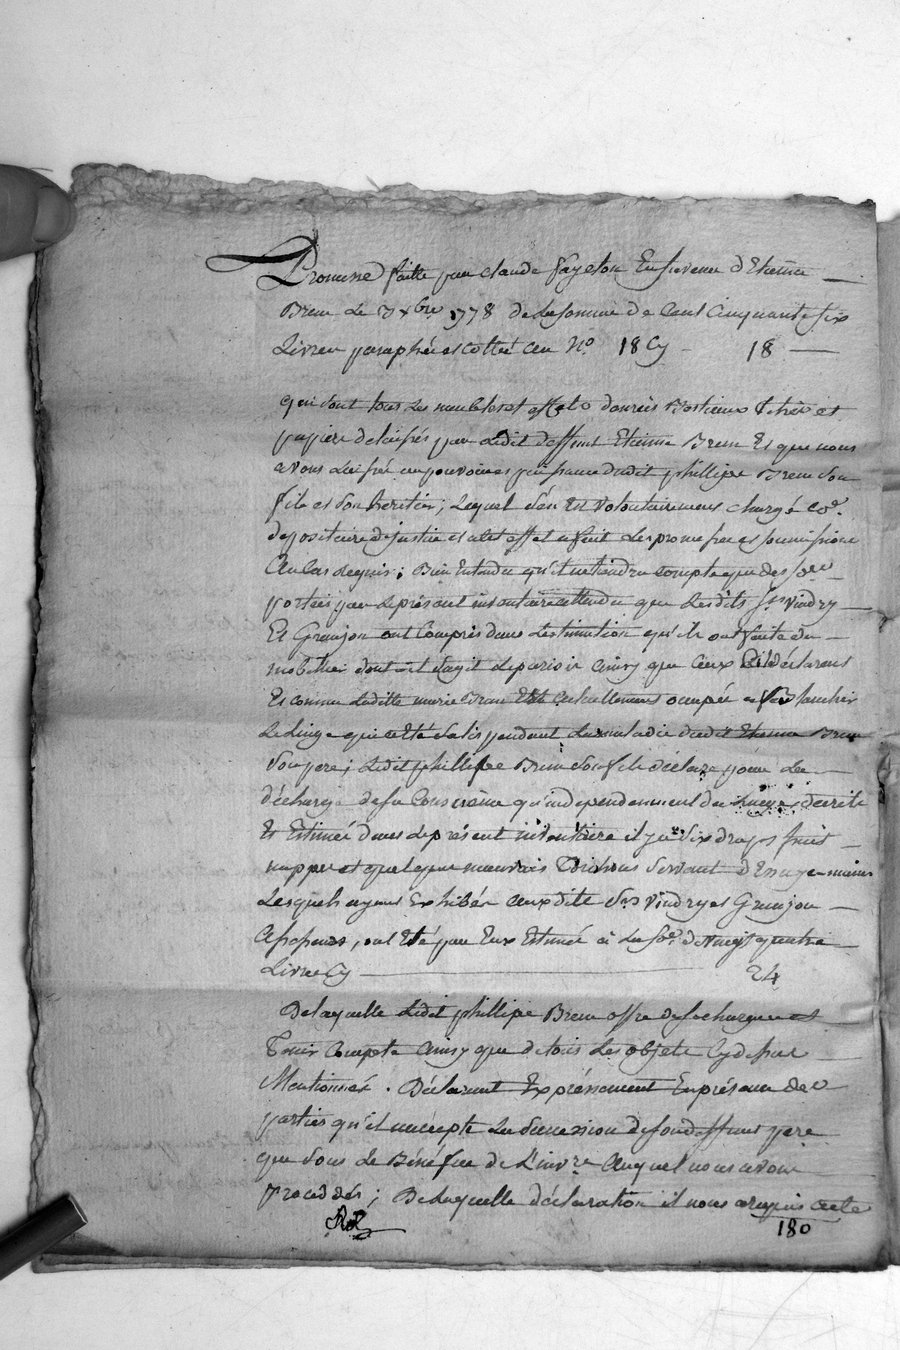 Promesse faitte par claude fayeton En faveur d'Etienne
Brun Le 7 xbre 1778 de La Somme de Cent Cinquante six
Livres paraphée et cottée au No. 18 Cy - 18
qui sont tous Les meubles et effets danrées Bestiaux titres et
papiers delaissés par Ledit deffunt Etienne Brun Et que nous
avons Laissé au pouvoir et puissance dudit phillipe Brun Son
fils et Son heritier; Lequel s'en Est volontairement chargé Co.e
depositaire de justice et a cet effet a fait Les promesses et soumissions
Au Cas Requis; Bien Entendu qu'il ne tiendra compte que des So.es
portées par Le présent inventaire attendu que Lesdits Srs Vindry
Et Granjon ont Compris dans L'estimation qu'ils ont faite du
mobilier dont il s'agit Le parisis Ainsy que Ceux Ci Déclarent
Et comme Laditte marie Brun Est actuellement occupée a Blanchir
Le Linge qui a Eté Sali pendant La maladie dudit Etienne Brun
Son pere; Ledit phillipe Brun Son fils déclare pour La
décharge de sa Conscience qu'independamment du Linge decrite
Et Estimée dans Le présent inventaire il y a Six draps huit
nappes et quelque mauvais torchons Servant d'Essuye-mains
Lesquels ayant Exhibés auxdits Srs Vindry et Granjon
, ont Eté par Eux Estimés a La So.e de Vingt quatre
Livres Cy 24
De laquelle Ledit phillipe Brun offre de se charger et
Tenir Compte Ainsy que de tous Les objets Cy dessus
Mentionnés. Déclarant Expréssement En présence des
parties qu'il accepte La Succession de son deffunt pere
que sous Le Bénéfice de L'inv.re Auquel nous avons
procédés; De Laquelle déclaration il nous a requis acte
180